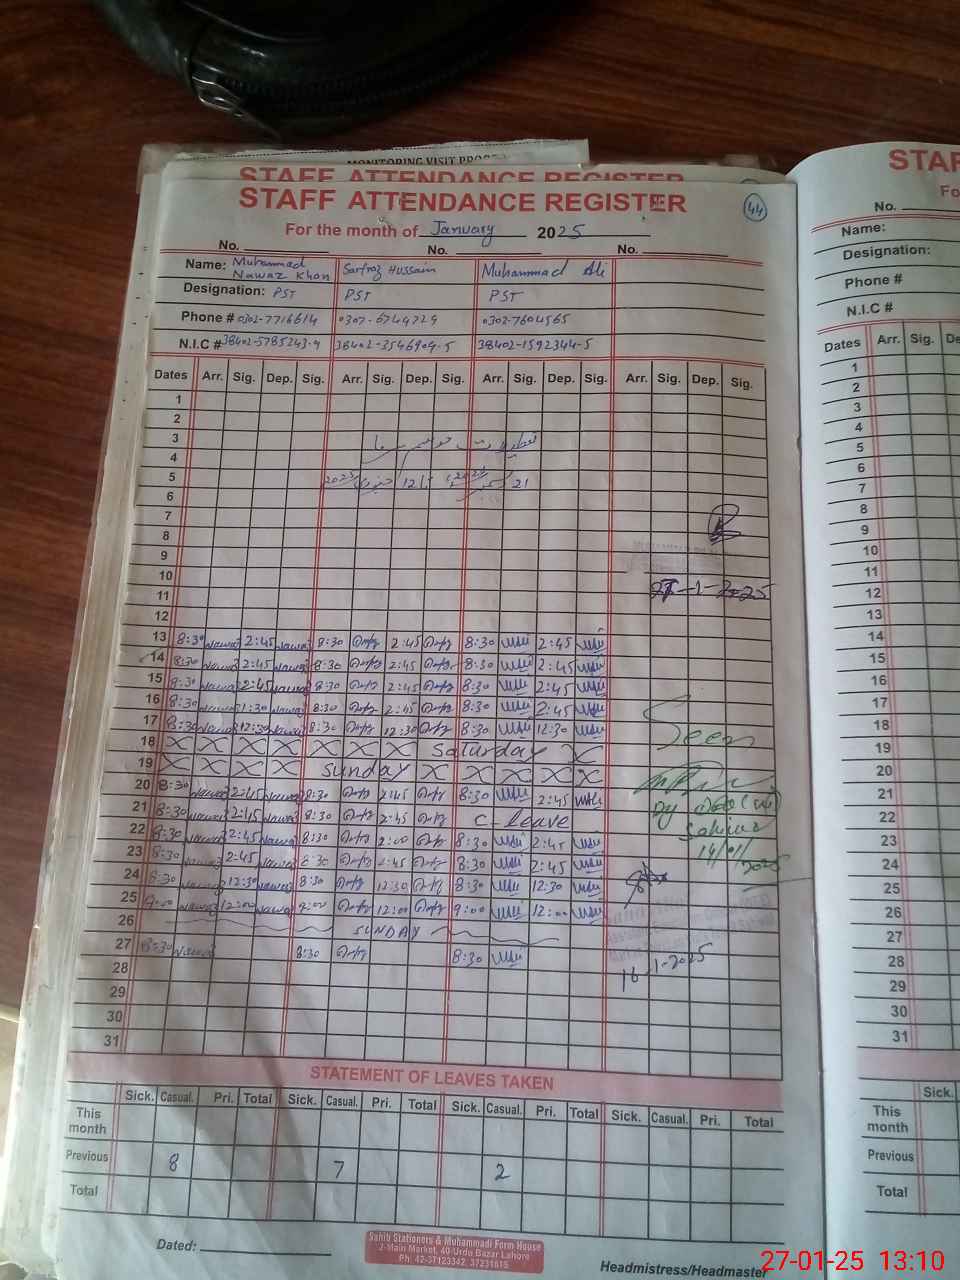 MONITORING VISIT
STAFF ATTENDANCE REGISTER
STAFF ATTENDANCE REGISTER
44
For the month of January 2025
No. No. No.
Name: Muhammad Nawaz Khan Sarfraz Hussain Muhammad Ali
Designation: PST PST PST
Phone # 0302-7716614 0307-6749729 0302-7604565
N.I.C # 38402-5785243-9 38402-3546904-5 38402-1592344-5
Dates Arr. Sig. Dep. Sig. Arr. Sig. Dep. Sig. Arr. Sig. Dep. Sig. Arr. Sig. Dep. Sig.
1
2
3 تعطیلات موسم سرما
4
5 21 دسمبر 2024 تا 12 جنوری 2025
6
7
8
9
10
11 27-1-2025
12
13 8:30 Nawaz 2:45 Nawaz 8:30 2:45 8:30 2:45
14 8:30 Nawaz 2:45 Nawaz 8:30 2:45 8:30 2:45
15 8:30 Nawaz 2:45 Nawaz 8:30 2:45 8:30 2:45
16 8:30 Nawaz 1:30 Nawaz 8:30 2:45 8:30 2:45
17 8:30 Nawaz 12:30 Nawaz 8:30 12:30 8:30 12:30
18 X X X X X X X Saturday X
19 X X X X Sunday X X X X X
Seen
20 8:30 Nawaz 2:45 Nawaz 8:30 2:45 8:30 2:45
21 8:30 Nawaz 2:45 Nawaz 8:30 2:45 C-leave
22 8:30 Nawaz 2:45 Nawaz 8:30 2:00 8:30 2:45
23 8:30 Nawaz 2:45 Nawaz 8:30 2:45 8:30 2:45
24 8:30 Nawaz 12:30 Nawaz 8:30 12:30 8:30 12:30
25 9:00 Nawaz 12:00 Nawaz 9:00 12:00 9:00 12:00
26 SUNDAY
27 8:30 Nawaz 8:30 8:30
28
29
30
31
Dy
Sahiwal
14/01/2025
16-1-2025
STATEMENT OF LEAVES TAKEN
Sick. Casual. Pri. Total Sick. Casual. Pri. Total Sick. Casual. Pri. Total Sick. Casual. Pri. Total
This month
Previous 8 7 2
Total
Dated:
Sahib Stationers & Muhammadi Form House
2-Main Market, 40-Urdu Bazar Lahore
Ph. 42-37123342, 37231615
Headmistress/Headmaster
STAF
Fo
No.
Name:
Designation:
Phone #
N.I.C #
Dates Arr. Sig. De
1
2
3
4
5
6
7
8
9
10
11
12
13
14
15
16
17
18
19
20
21
22
23
24
25
26
27
28
29
30
31
Sick.
This month
Previous
Total
27-01-25 13:10